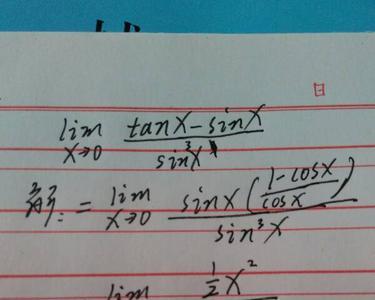 lim x→0 (tanx - sinx) / sin³x
解: = lim x→0 sinx((1-cosx)/cosx) / sin³x
lim ½x²